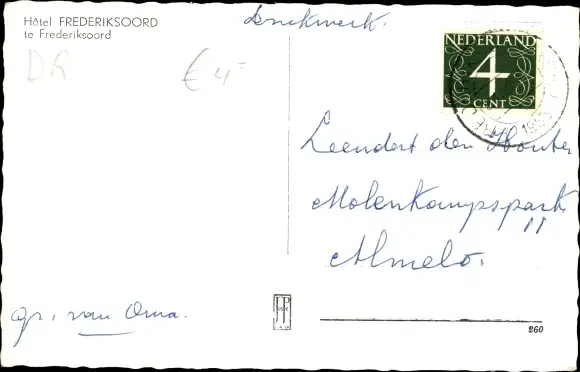 Hôtel FREDERIKSOORD
te Frederiksoord
Drukwerk.
DR
€ 4=
NEDERLAND
4
CENT
Leendert den Houter
Molenkampspark
11
Almelo.
gr. van Oma.
JP
260